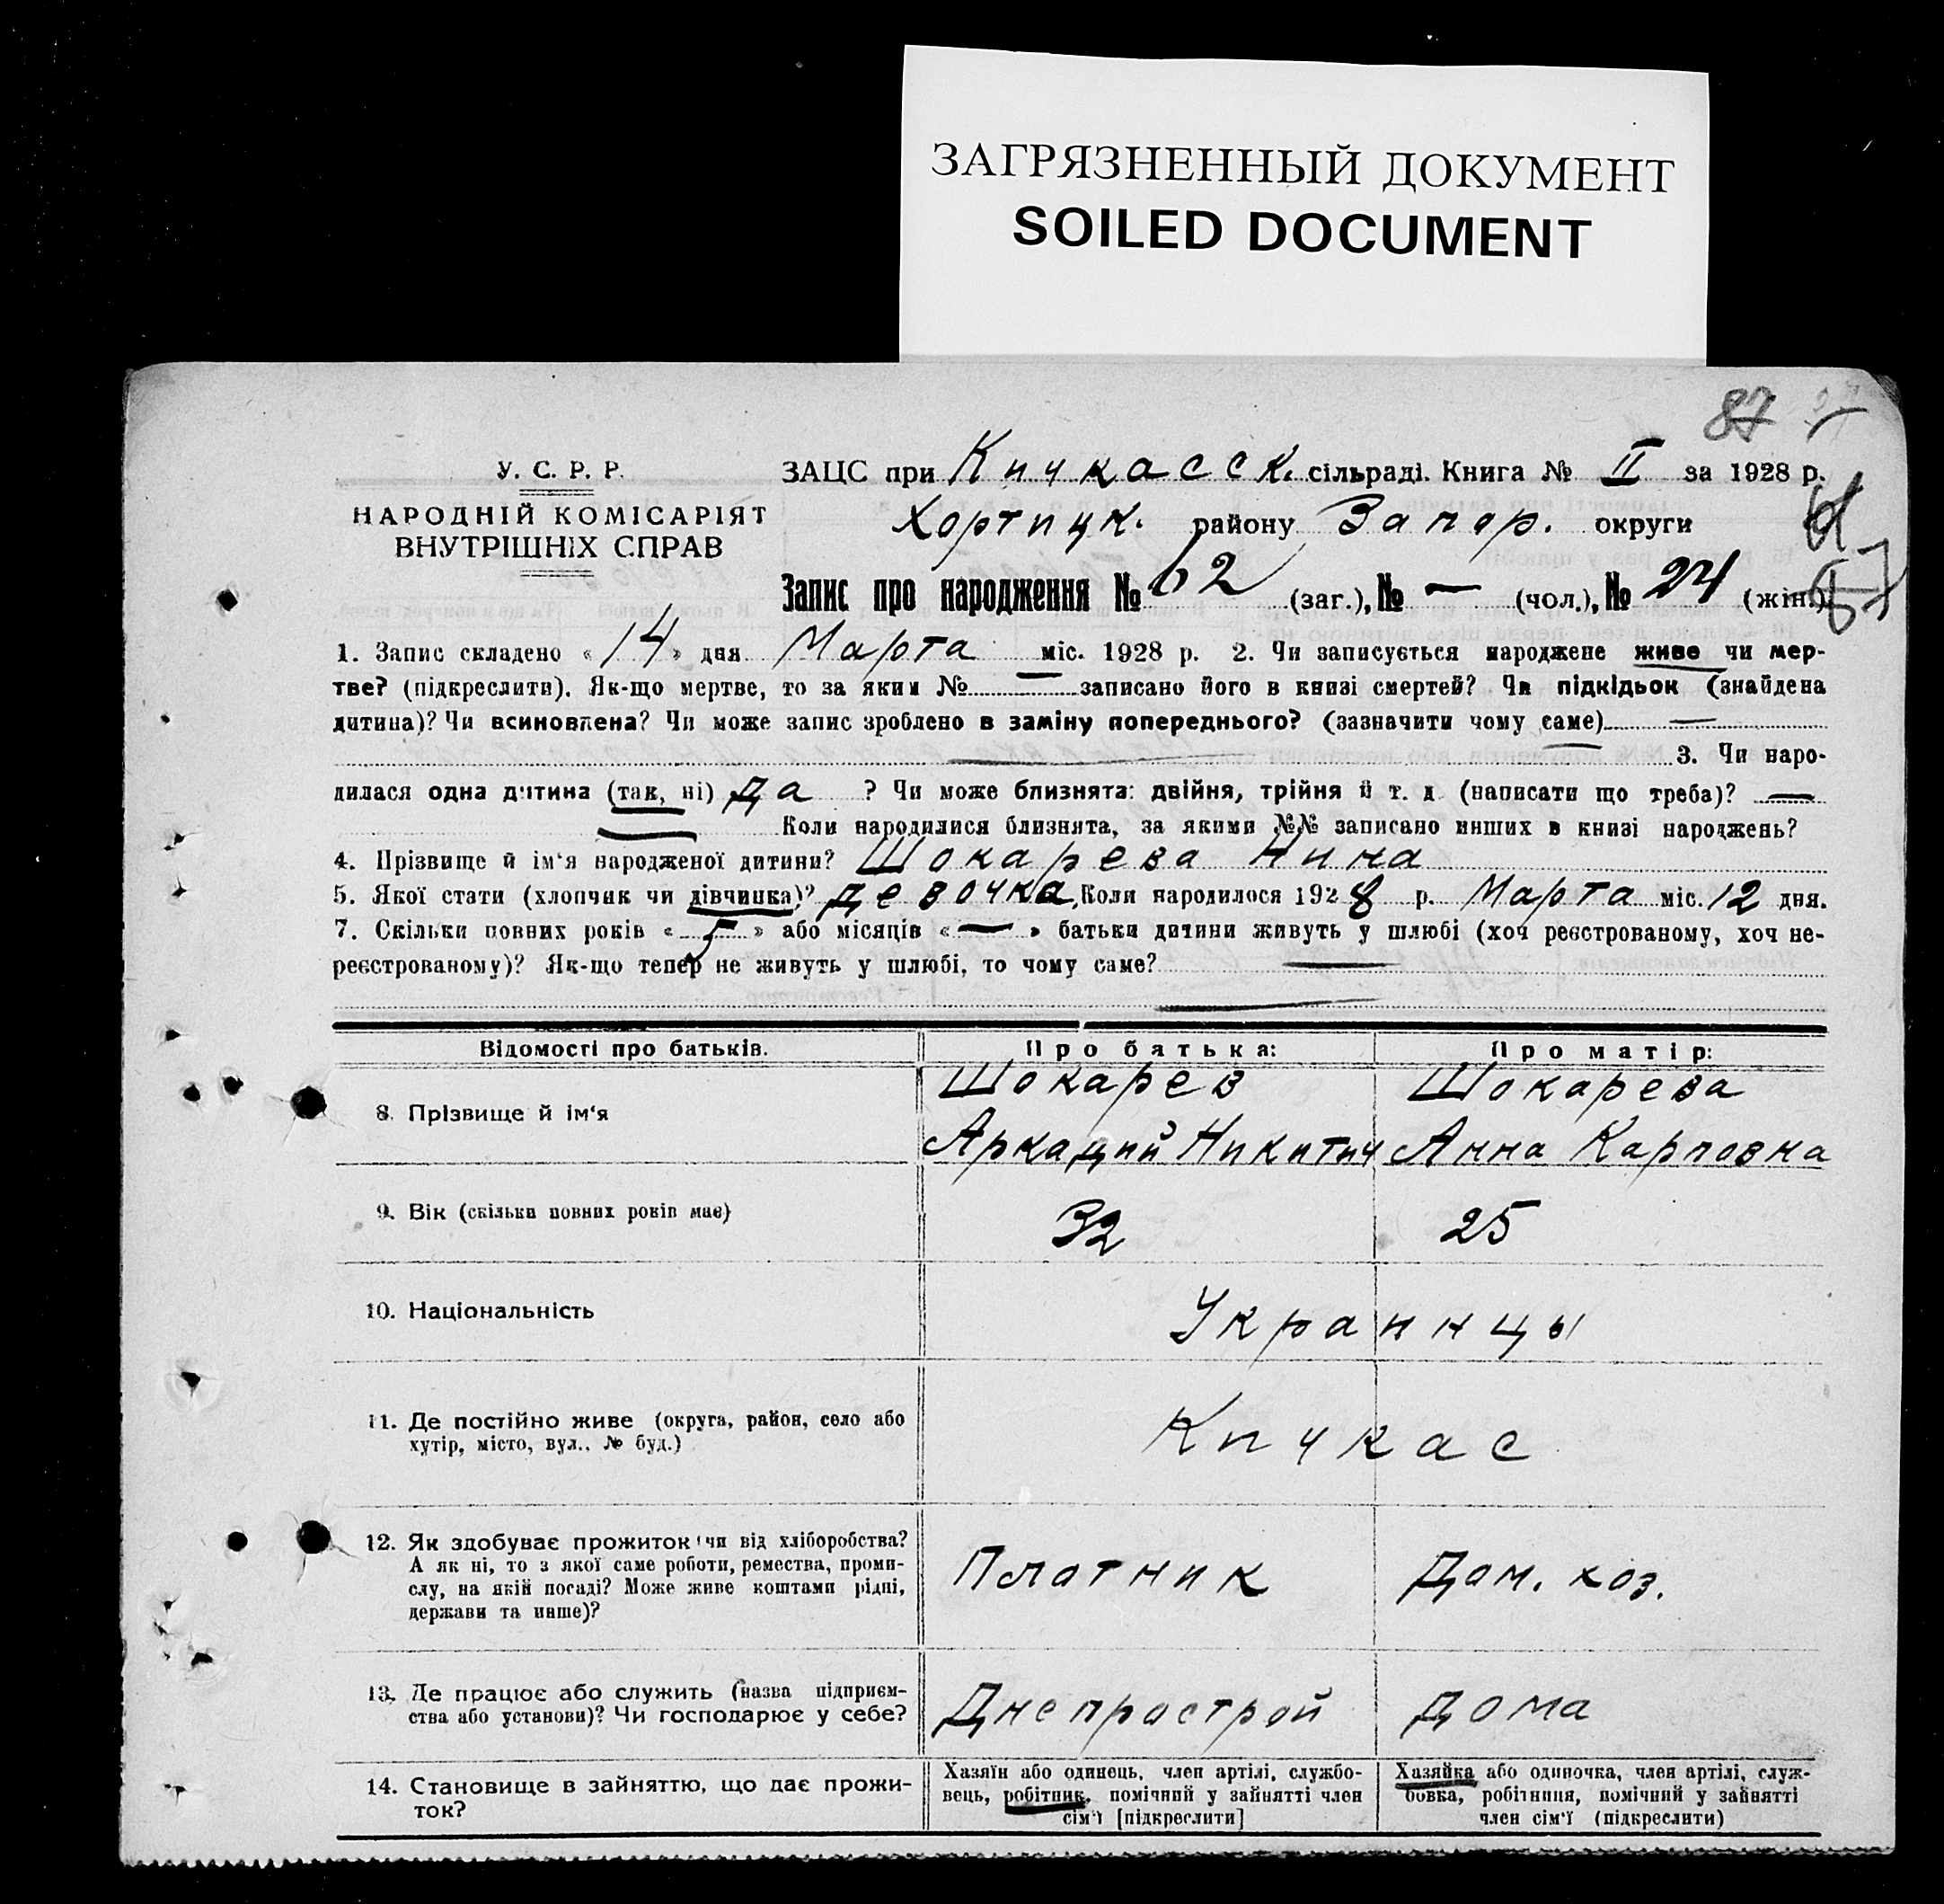 ЗАГРЯЗНЕННЫЙ ДОКУМЕНТ
SOILED DOCUMENT
87
У. С. Р. Р.
НАРОДНІЙ КОМІСАРІЯТ
ВНУТРІШНІХ СПРАВ
ЗАЦС при Кичкасск. сільраді. Книга № II за 1928 р.
Хортицк. району Запор. округи
Запис про народження № 62 (заг.), № — (чол.), № 24 (жін.)
1. Запис складено « 14 » дня Марта міс. 1928 р. 2. Чи записується народжене живе чи мер-
тве? (підкреслити). Як-що мертве, то за яким № — записано його в книзі смертей? Чи підкідьок (знайдена
дитина)? Чи всиновлена? Чи може запис зроблено в заміну попереднього? (зазначити чому саме) —
— 3. Чи наро-
дилася одна дитина (так, ні) Да ? Чи може близнята: двійня, трійня й т. д. (написати що треба)? —
— Коли народилися близнята, за якими №№ записано инших в книзі народжень?
4. Прізвище й ім'я народженої дитини? Шокарева Нина
5. Якої стати (хлопчик чи дівчинка)? Девочка. Коли народилося 1928 р. Марта міс. 12 дня.
7. Скільки повних років « 5 » або місяців « — » батьки дитини живуть у шлюбі (хоч реєстрованому, хоч не-
реєстрованому)? Як-що тепер не живуть у шлюбі, то чому саме? —
Відомості про батьків. Про батька: Про матір:
8. Прізвище й ім'я Шокарев Аркадий Никитич Шокарева Анна Карповна
9. Вік (скільки повних років має) 32 25
10. Національність Украинцы
11. Де постійно живе (округа, район, село або
хутір, місто, вул., № буд.) Кичкас
12. Як здобуває прожиток (чи від хліборобства?
А як ні, то з якої саме роботи, ремества, проми-
слу, на якій посаді? Може живе коштами рідні,
держави та инше)? Плотник Дом. хоз.
13. Де працює або служить (назва підприєм-
ства або установи)? Чи господарює у себе? Днепрострой Дома
14. Становище в зайняттю, що дає прожи-
ток?
Хазяїн або одинець, член артілі, службо-
вець, робітник, помічний у зайнятті член
сім'ї [підкреслити]
Хазяйка або одиночка, член артілі, служ-
бовка, робітниця, помічний у зайнятті
член сім'ї (підкреслити)